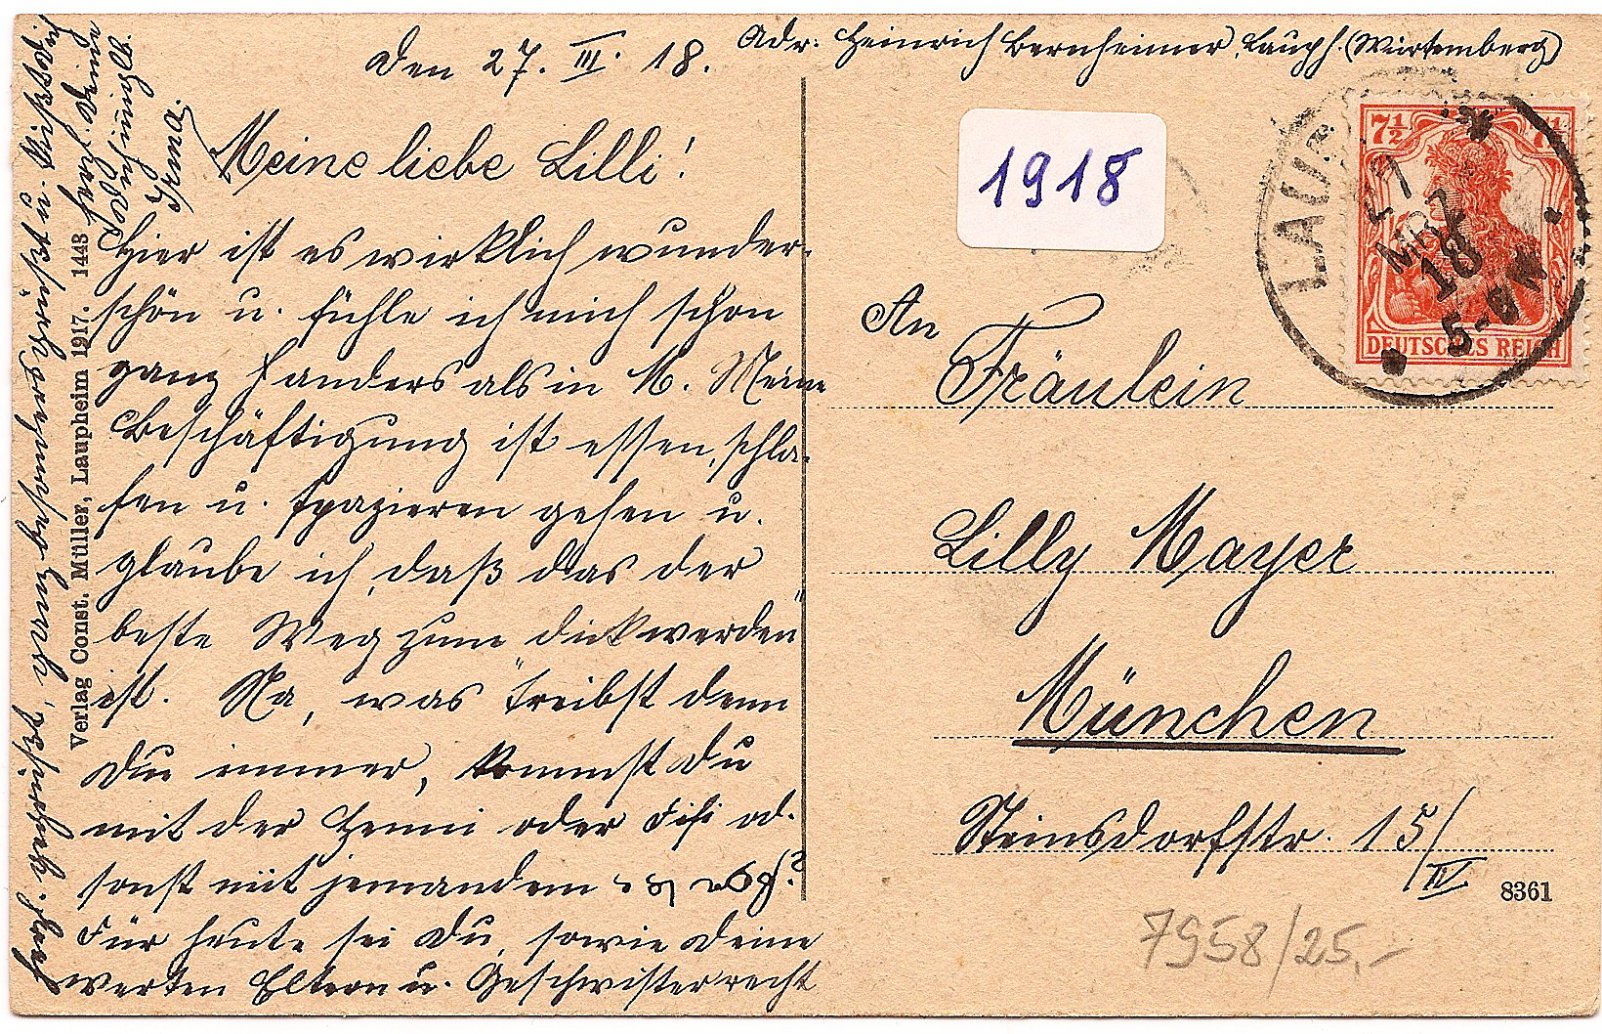 Den 27. III. 18.
Adr: Heinrich Bernheimer, Lauph. (Würtemberg)
Meine liebe Lilli!
Hier ist es wirklich wunder-
schön u. fühle ich mich schon
ganz anders als in M. Meine
Beschäftigung ist essen, schla-
fen u. spazieren gehen u.
glaube ich, daß das der
beste Weg zum dickwerden"
ist. Na, was treibst denn
Du immer, kommst Du
mit der Henni oder Fifi od.
sonst mit jemandem
Für heute sei Du, sowie Deine
werten Eltern u. Geschwister recht
herzl.
Deine
Irma.
Verlag Const. Müller, Laupheim 1917. 1443
1918
LAUP
27
MRZ
18
5-6 N
7½
7½
DEUTSCHES REICH
An
Fräulein
Lilly Mayer
München
Steinsdorfstr. 15/
IV
8361
7958/25,-